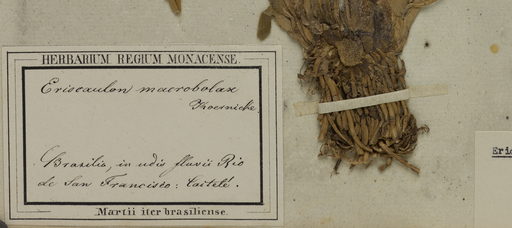 HERBARIUM REGIUM MONACENSE.
Eriocaulon macrobolax
Koernicke.
Brasilia, in udis fluvii Rio
de San Francisco: Caitelé.
Martii iter brasiliense.
Erio